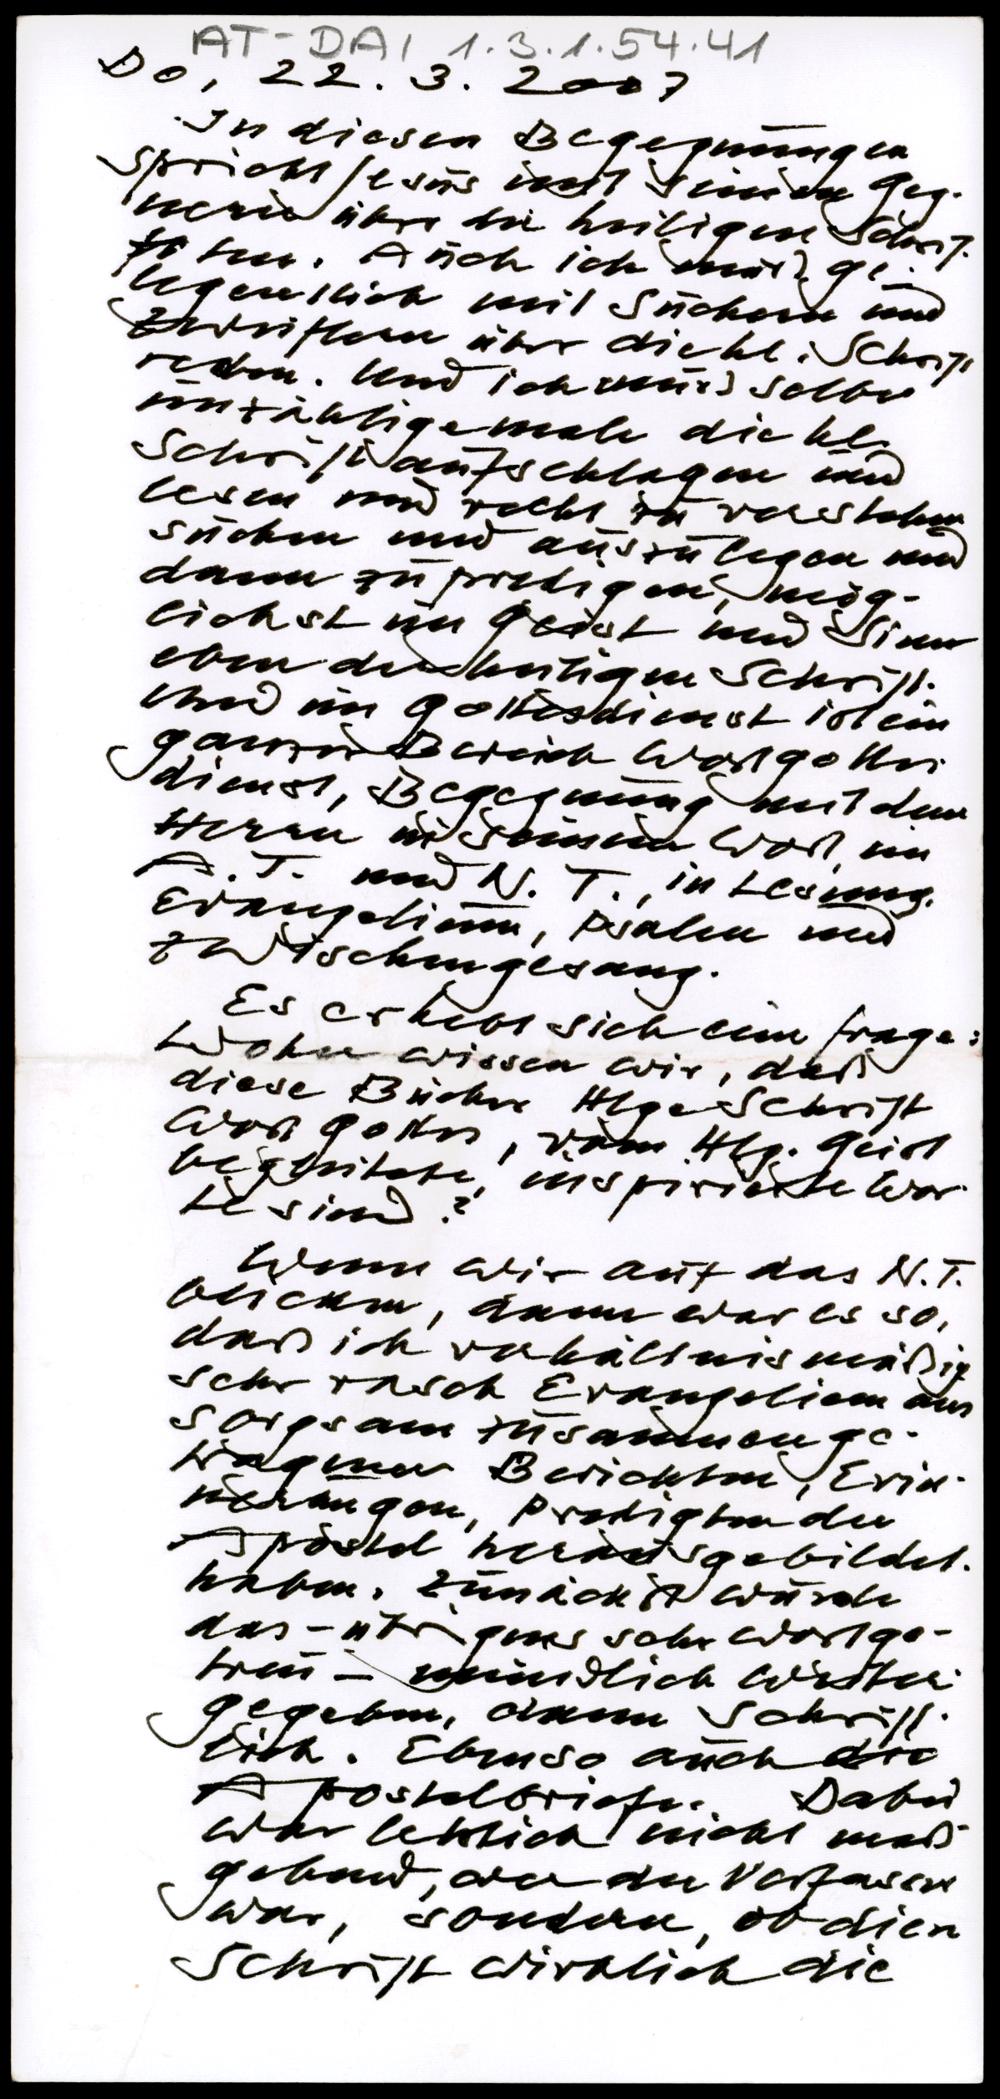 AT-DAI 1.3.1.54.41
Do, 22. 3. 2007
In diesen Begegnungen
spricht Jesus mit seinen Geg-
nern über die heiligen Schrif-
ten. Auch ich muß ge-
legentlich mit Suchern und
Zweiflern über die hl. Schrift
reden. Und ich muß selber
unzählige male die hl.
Schrift aufschlagen und
lesen und recht zu verstehen
suchen und auszulegen und
dann zu predigen, mög-
lichst im Geist und Sinn
eben der heiligen Schrift.
Und im Gottesdienst ist ein
ganzer Bereich Wortgottes-
dienst, Begegnung mit dem
Herrn in seinem Wort, im
A. T. und N. T., in Lesung,
Evangelium, Psalm und
Zwischengesang.
Es erhebt sich eine Frage:
Woher wissen wir, daß
diese Bücher Hlge Schrift
Wort Gottes, vom Hlg. Geist
begleitete, inspirierte Wor-
te sind?
Wenn wir auf das N.T.
blicken, dann war es so,
daß sich verhältnismäßig
sehr rasch Evangelien aus
sorgsam zusammenge-
tragenen Berichten, Erin-
nerungen, Predigten der
Apostel herausgebildet
haben. Zunächst wurde
das - übrigens sehr wortge-
treu - mündlich weiter-
gegeben, dann schrift-
lich. Ebenso auch die
Apostelbriefe. Dabei
war letztlich nicht maß-
gebend, wer der Verfasser
war, sondern, ob diese
Schrift wirklich die